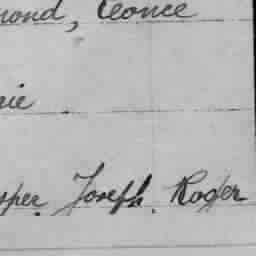 mond, Leonce
rie
sper, Joseph, Roger